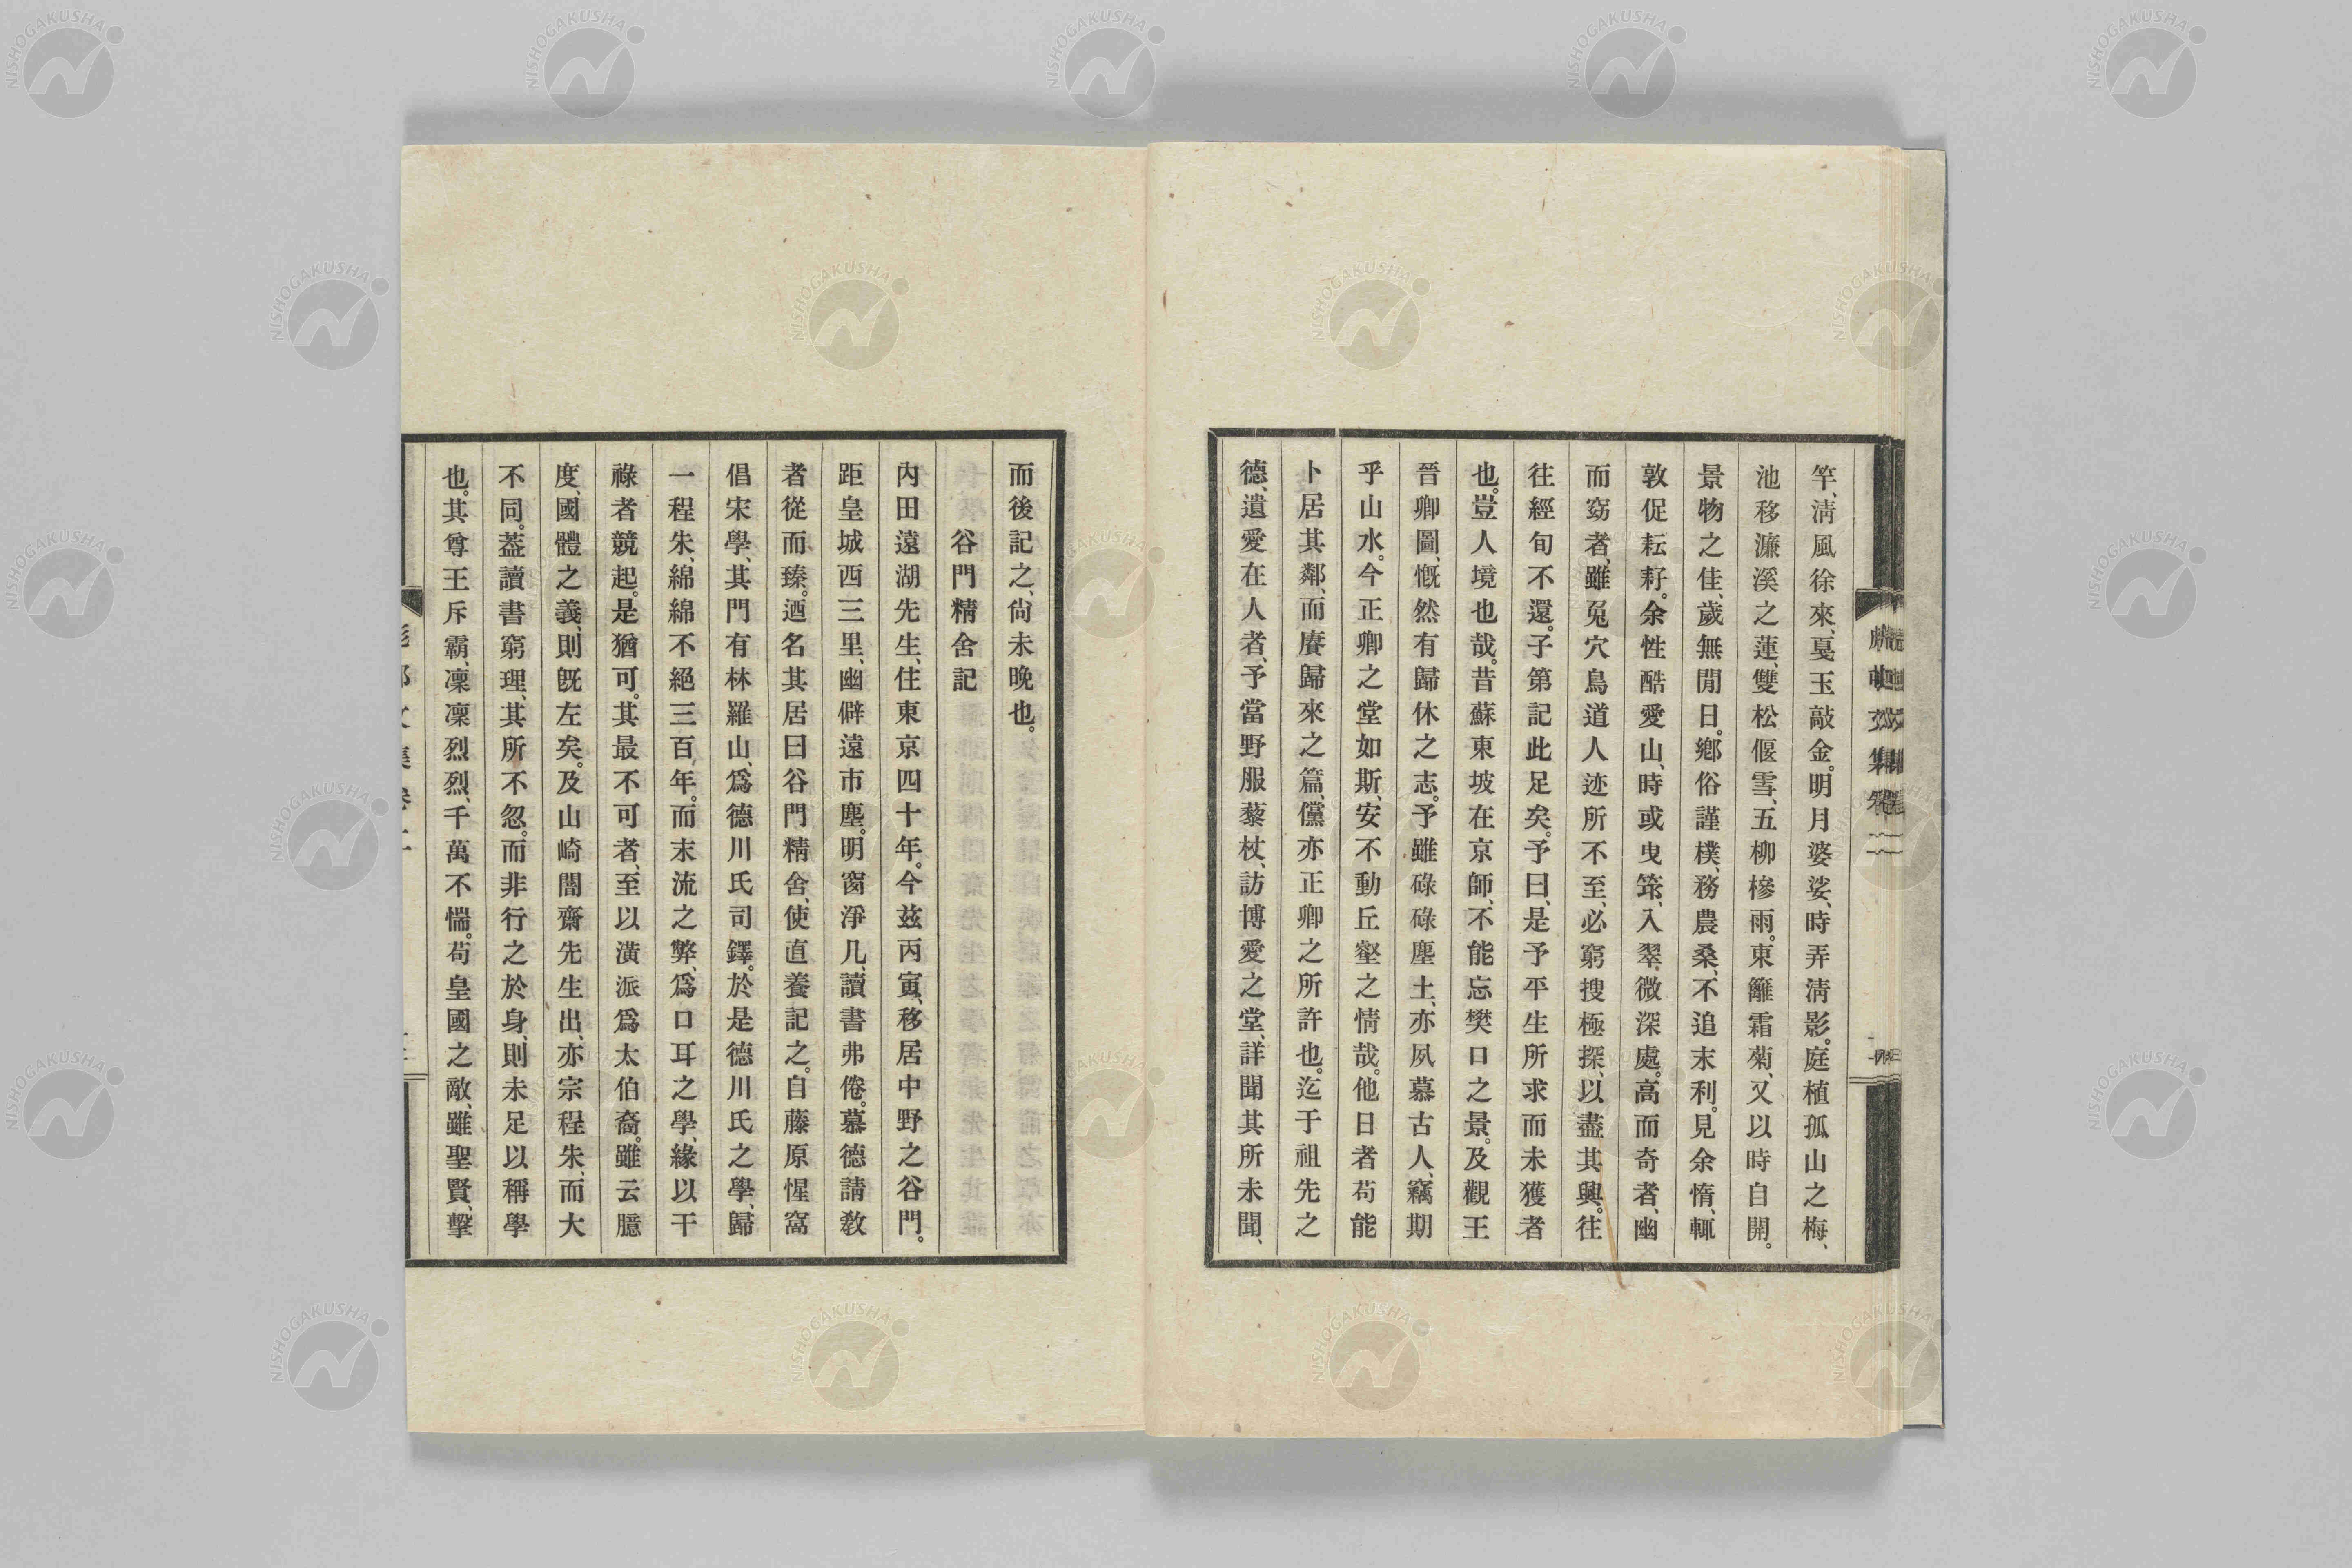 竿、淸風徐來、戛玉敲金。明月婆娑、時弄淸影。庭植孤山之梅、
池移濂溪之蓮、雙松偃雪、五柳樛雨。東籬霜菊、又以時自開。
景物之佳、歲無閒日。鄕俗謹樸、務農桑、不追末利。見余惰、輒
敦促耘耔。余性酷愛山、時或曳筇、入翠微深處。高而奇者、幽
而窈者、雖兎穴鳥道人迹所不至、必窮搜極探、以盡其興。往
往經旬不還。子第記此足矣。予曰、是予平生所求而未獲者
也。豈人境也哉。昔蘇東坡在京師、不能忘樊口之景。及觀王
晉卿圖、慨然有歸休之志。予雖碌碌塵土、亦夙慕古人、竊期
乎山水。今正卿之堂如斯、安不動丘壑之情哉。他日者苟能
卜居其鄰、而賡歸來之篇、儻亦正卿之所許也。迄于祖先之
德、遺愛在人者、予當野服藜杖、訪博愛之堂、詳聞其所未聞、
而後記之、尙未晚也。
谷門精舍記
內田遠湖先生、住東京四十年。今玆丙寅、移居中野之谷門。
距皇城西三里、幽僻遠市塵。明窗淨几、讀書弗倦。慕德請敎
者從而臻。迺名其居曰谷門精舍、使直養記之。自藤原惺窩
倡宋學、其門有林羅山、爲德川氏司鐸。於是德川氏之學、歸
一程朱、綿綿不絕三百年。而末流之弊、爲口耳之學、緣以干
祿者競起。是猶可。其最不可者、至以潢派爲太伯裔。雖云臆
度、國體之義、則旣左矣。及山崎闇齋先生出、亦宗程朱、而大
不同。葢讀書窮理、其所不忽。而非行之於身、則未足以稱學
也。其尊王斥霸、凜凜烈烈、千萬不惴。苟皇國之敵、雖聖賢、擊
NISHOGAKUSHA